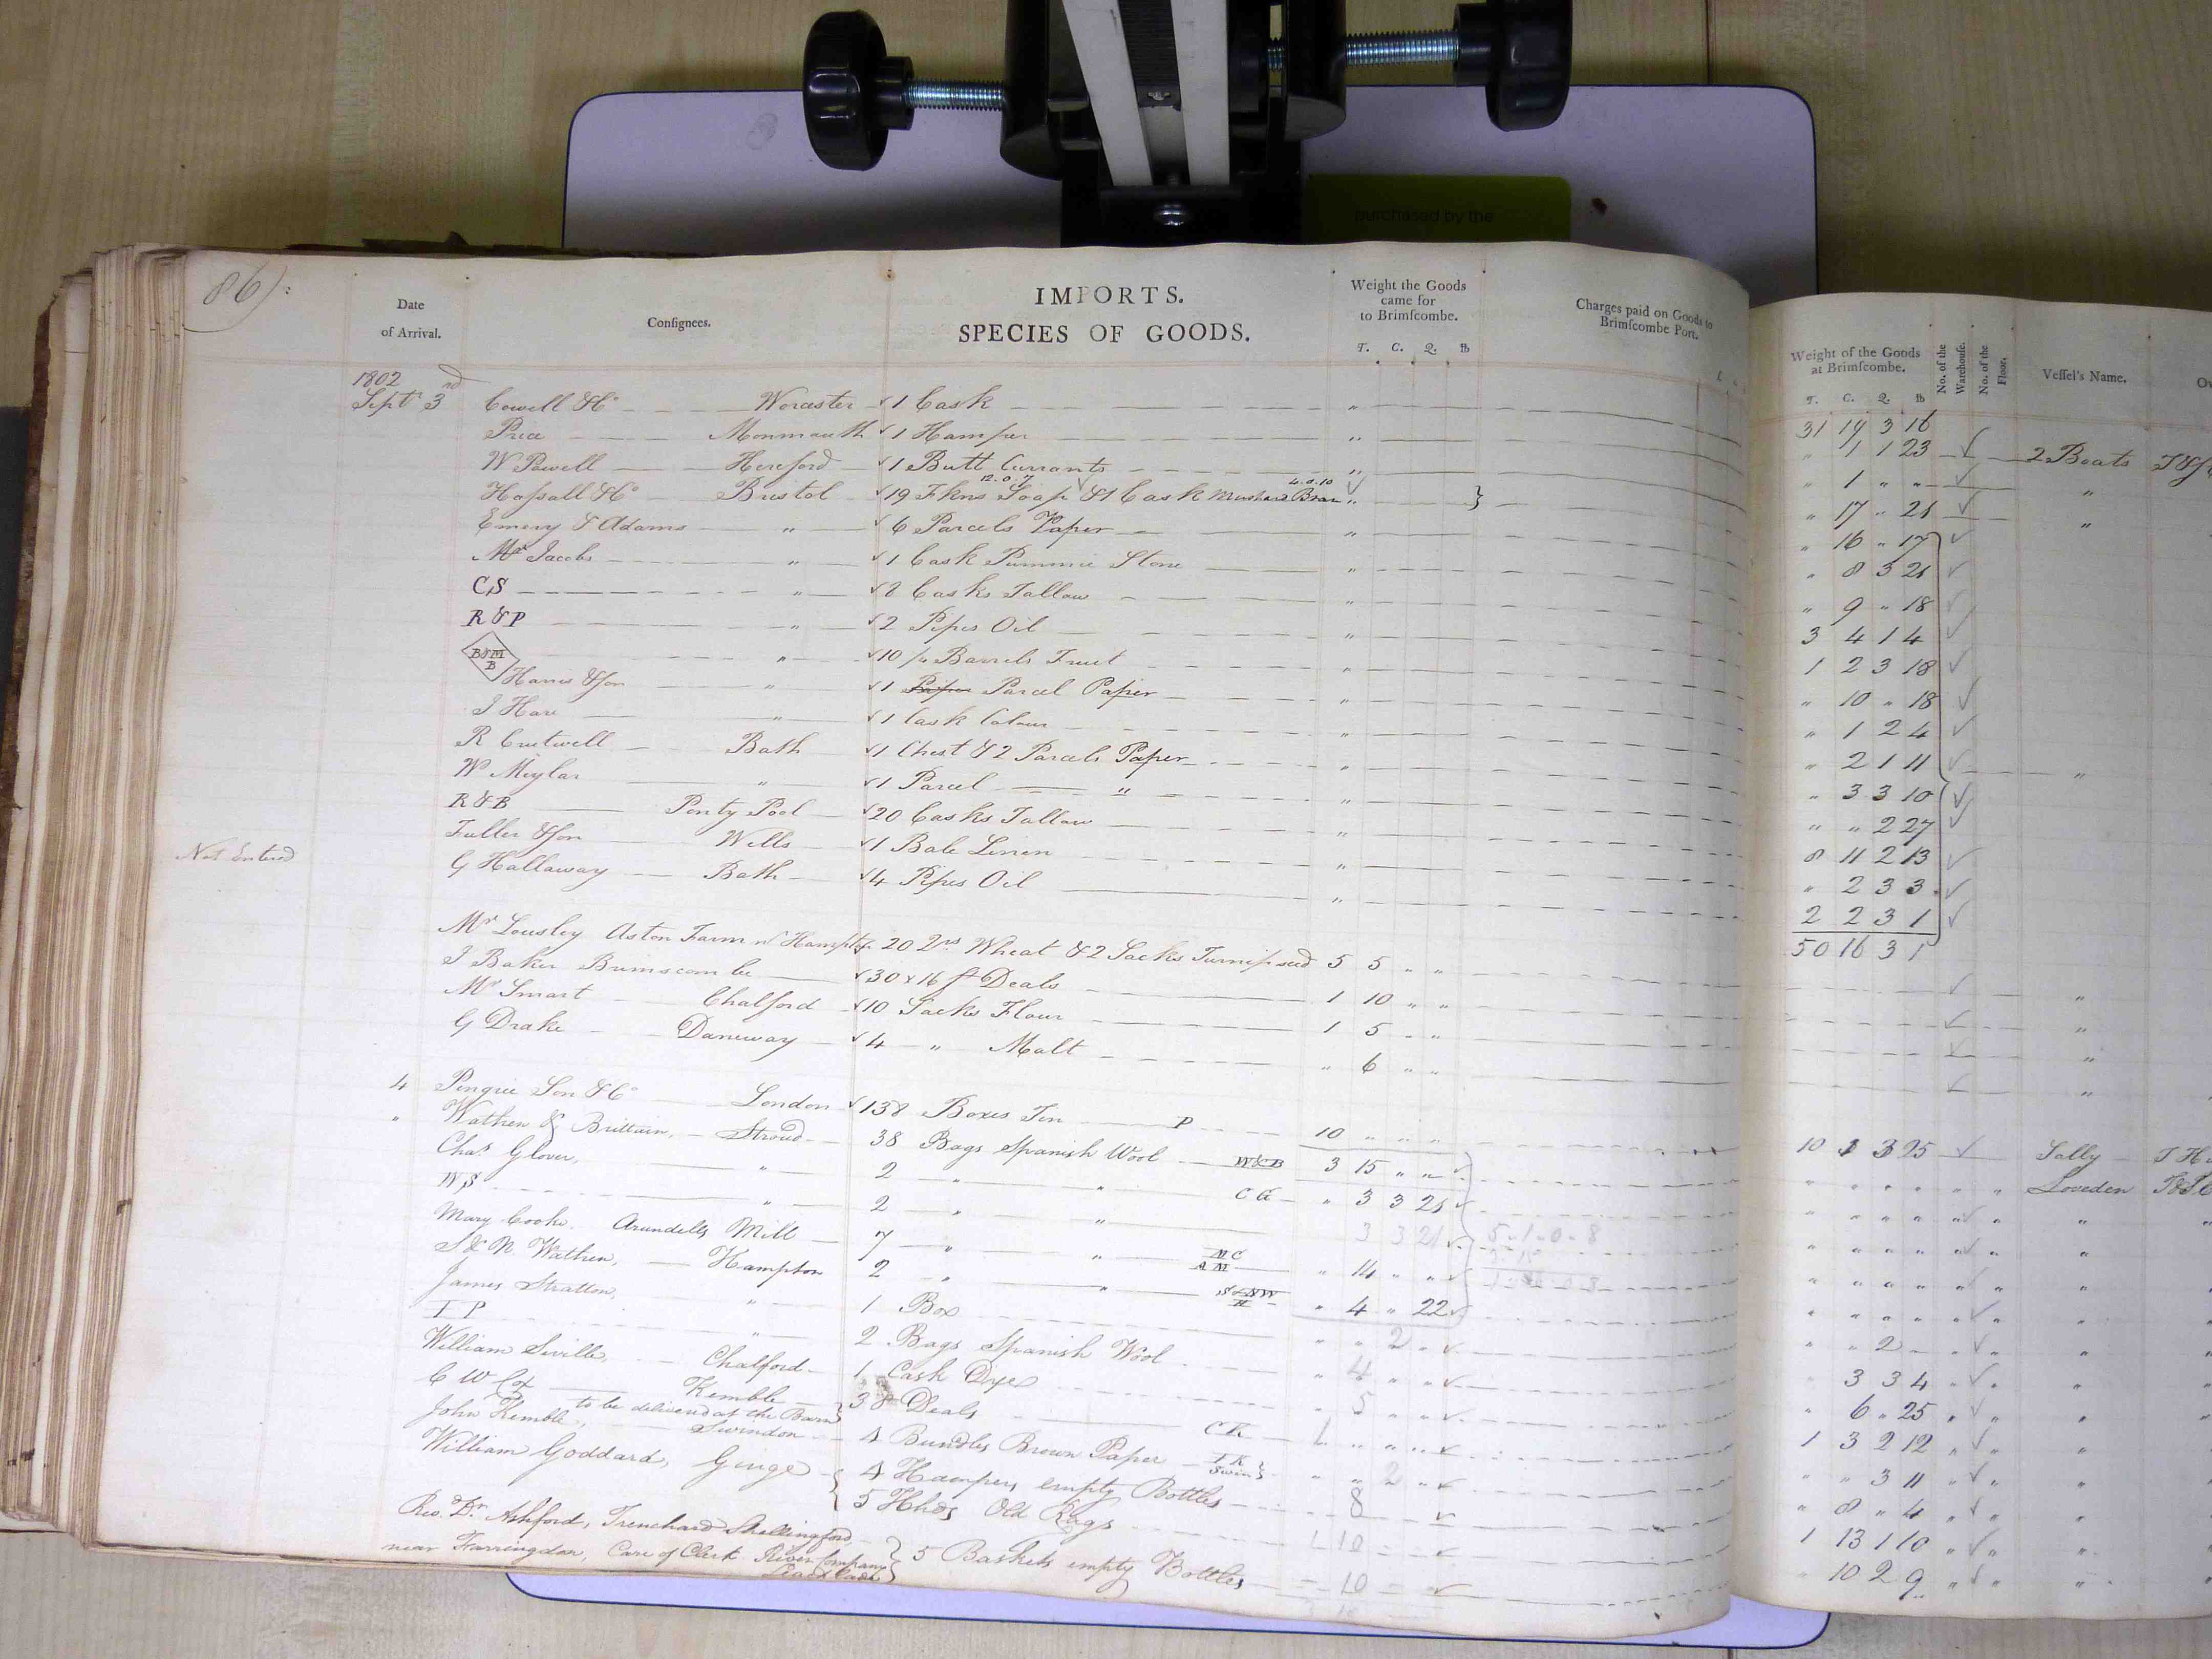 purchased by the
86):
Date of Arrival.
Consignees.
IMPORTS.
SPECIES OF GOODS.
Weight the Goods came for to Brimscombe.
T. C. Q. lb
Charges paid on Goods to Brimscombe Port.
Weight of the Goods at Brimscombe.
T. C. Q. lb
No. of the Warehouse.
No. of the Floor.
Vessel's Name.
1802
31 19 3 16
Sept 3rd Cowell & Co Worcester 1 Cask " 1 1 23 2 Boats
Price Monmouth 1 Hamper " 1 " " "
W Powell Hereford 1 Butt Currants " 17 " 21 "
12.0.7 4.0.10
Hassall & Co Bristol 19 Fkns Soap & 1 Cask Mustard Bran " 16 " 17
Emery & Adams " 6 Parcels Paper " 8 3 21
Mr Jacobs " 1 Cask Pummic Stone " 9 " 18
CS " 2 Casks Tallow 3 4 1 4
R&P " 2 Pipes Oil 1 2 3 18
B&M B " 10 Barrels Fruit " 10 " 18
Harris & Son " 1 Paper Parcel Paper " 1 2 4
J Hare " 1 Cask Colour " 2 1 11 "
R Crutwell Bath 1 Chest & 2 Parcels Paper " 3 3 10
W Meylar " 1 Parcel " " " 2 27
R&B Ponty Pool 20 Casks Tallow 8 11 2 13
Fuller & Son Wells 1 Bale Linen " 2 3 3
Not Entered G Hallaway Bath 4 Pipes Oil 2 2 3 1
50 16 3 1
Mr Lousley Aston Farm Hampt 20 Qrs Wheat & 2 Sacks Turnip seed 5 5 " " "
J Baker Brimscombe 30 x 16 ft Deals 1 10 " " "
Mr Smart Chalford 10 Sacks Flour 1 5 " " "
G Drake Daneway 4 " Malt " 6 " " "
4 Pingrie Son & Co London 138 Boxes Tin P 10 " " " 10 1 3 25 Sally
" Wathen & Brittain, Stroud 38 Bags Spanish Wool W&B 3 15 " " Loveden
Chas Glover, " 2 " " C G " 3 3 21 "
WS " 2 " " 3 3 21 5-1-0-8 "
Mary Cooke. Arundells Mill 7 " " MC AM " 14 " " "
S & N Wathen, Hampton 2 " " S&NW H " 4 " 22 "
James Stratton, " 1 Box " " 2 " " " 2 "
I P " 2 Bags Spanish Wool " 4 " " " 3 3 4 "
William Siville, Chalford 1 Cask Dyes " 5 " " " 6 " 25 "
C W Cox Kemble to be delivered at the Barn 38 Deals CK 1 " " " 1 3 2 12 "
John Kemble, Swindon 4 Bundles Brown Paper IK Swin " " 2 " " " 3 11 "
William Goddard, Ginge 4 Hampers empty Bottles 8 " 8 " 4 "
5 Hhds Old Rags 1 10 1 13 1 10 "
Rev. Dr. Ashford, Trenchard Shellingford
near Farringdon, Care of Clerk River Company 5 Baskets empty Bottles 10 " 10 2 9 "